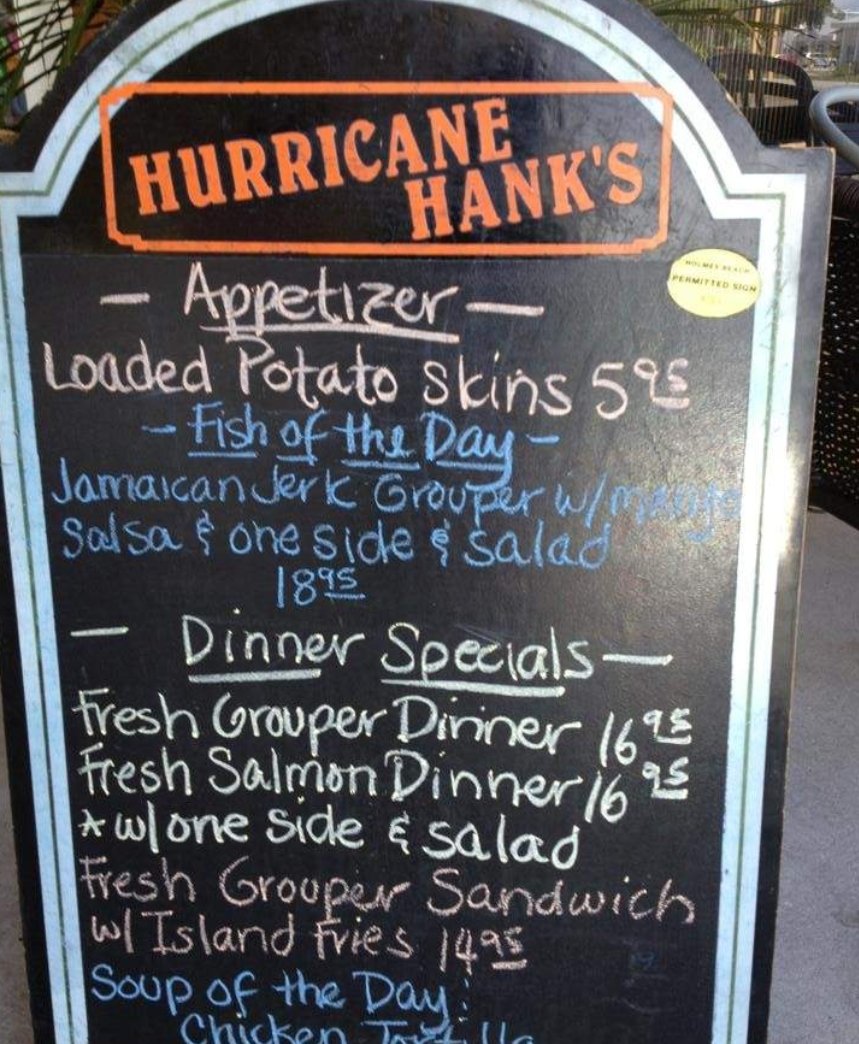 HURRICANE
HANK'S
HOLMES BEACH
PERMITTED SIGN
- Appetizer -
Loaded Potato Skins 5 95
- Fish of the Day -
Jamaican Jerk Grouper w/ mango
Salsa & one side & salad
18 95
- Dinner Specials -
Fresh Grouper Dinner 16 95
Fresh Salmon Dinner 16 95
* w/ one side & salad
Fresh Grouper Sandwich
w/ Island Fries 14 95
Soup of the Day:
Chicken Tortilla